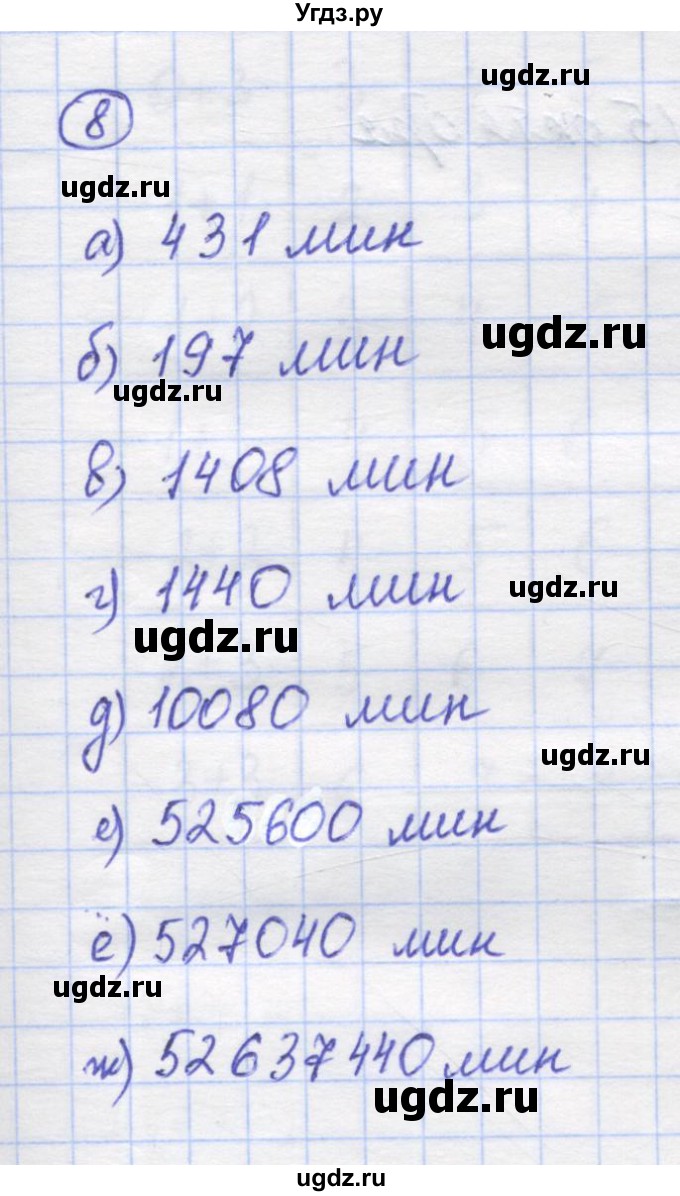 Угдз.ру
ugdz.ru
8
ugdz.ru
а) 431 мин
ugdz.ru
б) 197 мин
ugdz.ru
в) 1408 мин
г) 1440 мин
ugdz.ru
ugdz.ru
д) 10080 мин
ugdz.ru
е) 525600 мин
ё) 527040 мин
ugdz.ru
ж) 52637440 мин
ugdz.ru
ugdz.ru